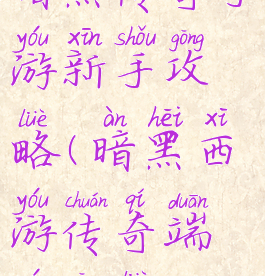 yóu xīn shǒu gōng
游新手攻
lüè àn hēi xī
略(暗黑西
yóu chuán qí duān
游传奇端